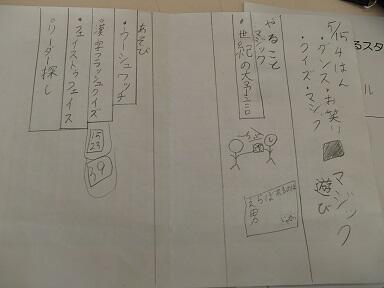 5/15 4はん
・ダンス・お笑い ■ マジック
・クイズ・マジック 遊び
やること
マジック
・世紀の大予言
えらばれるのは
男
あそび
・ウーシュワッチ
・漢字フラッシュクイズ
・フェイストゥフェイス
・リーダー探し
るスタ
ル
15
23
39